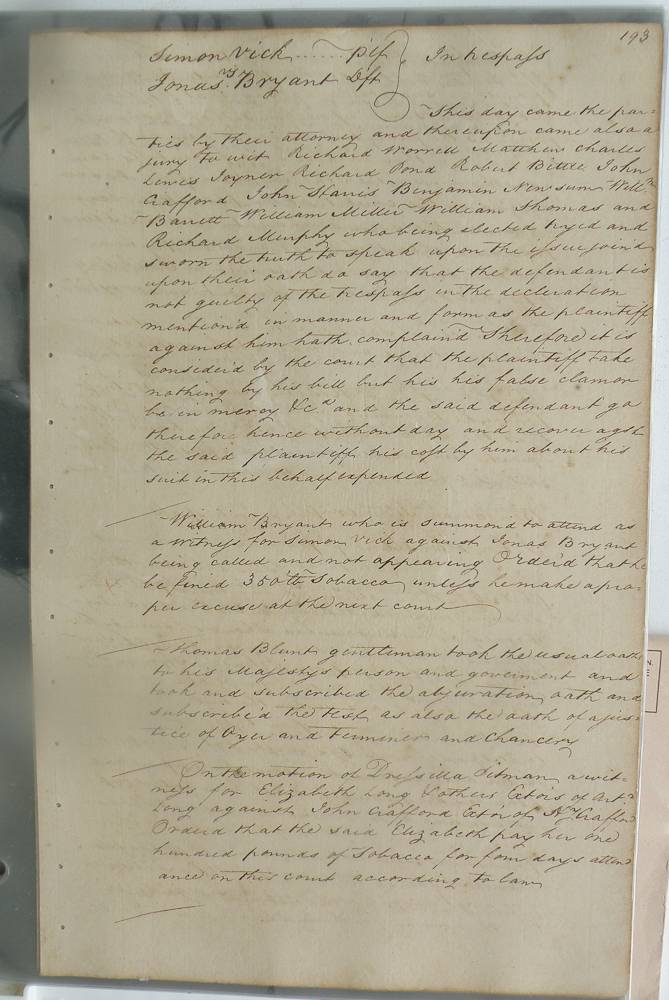 193
Simon Vick ...... Plf } In trespass
vs
Jonas Bryant Dft
This day came the par=
ties by their attorney and thereupon came also a
jury to wit Richard Worrell Matthew Charles
Lewis Joyner Richard Pond Robert Bittle John
Crafford John Benjamin Newsum Will.m
Barrett William Miller William Thomas and
Richard Murphy who being elected tryed and
sworn the truth to speak upon the issue joind
upon their oath do say that the defendant is
not guilty of the trespass in the declaration
mention'd in manner and form as the plaintiff
against him hath complain'd Therefore it is
consider'd by the court that the plaintiff take
nothing by his bill but his his false clamor
be in mercy &c.a and the said defendant go
therefor hence without day and recover agst
the said plaintiff his cost by him about his
suit in this behalf expended
William Bryant who is summon'd to attend as
a witness for Simon Vick against Jonas Bryant
being called and not appearing Order'd that he
be fined 350 lb Tobacco unless he make a pro=
per excuse at the next court
Thomas Blunt gentleman took the usual oaths
to his Majestys person and goverment and
took and subscribed the abjuration oath and
subscribe'd the test as also the oath of a jus=
tice of Oyer and Terminer and Chancery
On the motion of Pitman a wit=
ness for Elizabeth Long & others Exors of Art.r
Long against John Crafford Exor of
Orderd that the said Elizabeth pay her one
hundred pounds of Tobacco for four days atten=
ance on this court according to law